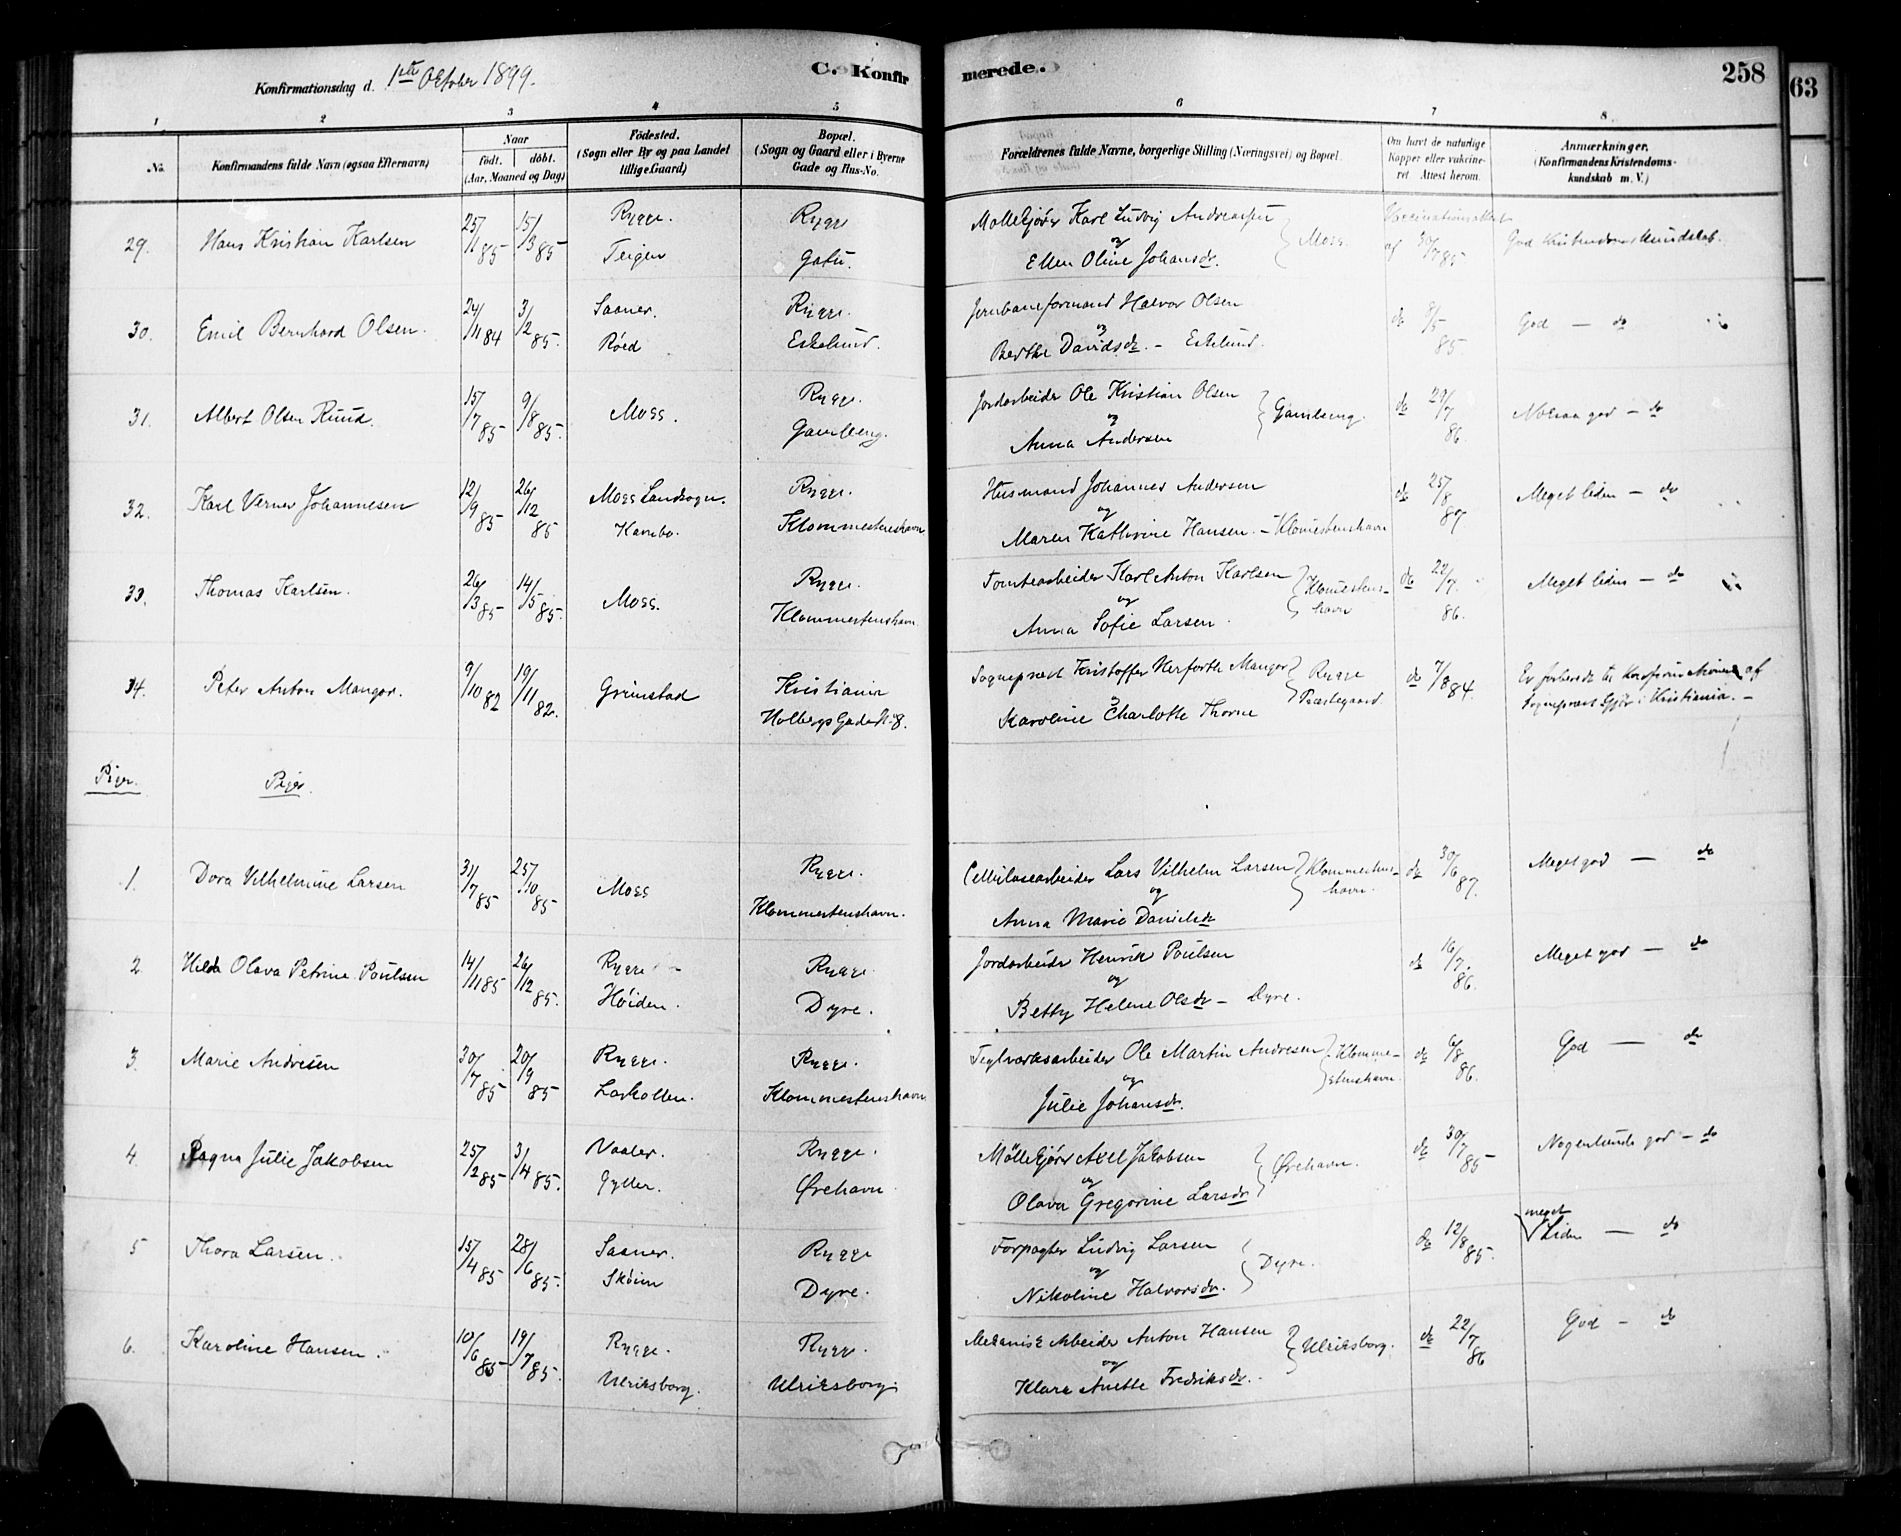 Konfirmationsdag d. 1ste October 1899.
C. Konfirmerede.
258
63
1 2 3 4 5 6 7 8
No.
Konfirmandens fulde Navn (ogsaa Efternavn)
Naar
födt. döbt.
(Aar, Maaned og Dag)
Födested.
(Sogn eller By og paa Landet tillige Gaard)
Bopæl.
(Sogn og Gaard eller i Byerne Gade og Hus-No.
Forældrenes fulde Navne, borgerlige Stilling (Næringsvei) og Bopæl.
Om havt de naturlige Kopper eller vakcineret Attest herom.
Anmærkninger,
(Konfirmandens Kristendomskundskab m. V.)
29. Hans Kristian Karlsen 25/1 85 15/3 85 Rygge. Teigen Rygge Gatu. Møllekjører Karl Ludvig Andreassen og Ellen Oline Johansdr. Moss. Vaccinationsattest af 30/7 85 God Kristendomskundskab.
30. Emil Bernhard Olsen. 24/11 84 3/2 85. Saaner. Röed Rygge. Eskelund. Jernbaneformand Halvor Olsen og Berthe Davidsdr. - Eskelund. do 8/5 85 God - do
31. Albert Olsen Ruud. 15/7 85 9/8 85. Moss. Rygge. Gamleeng. Jordarbeider Ole Kristian Olsen og Anna Andersen Gamleeng. do 29/7 86. Nokaa god - do
32. Karl Verner Johannesen 12/9 85 26/12 85 Moss Landsogn. Kambo. Rygge. Klommestenshavn Husmand Johannes Andersen og Maren Kathrine Hansen. - Klomestenshavn do 25/8 87 Meget liden - do
33. Thomas Karlsen. 26/3 85 14/5 85. Moss. Rygge. Klommestenshavn Tomtearbeider Karl Anton Karlsen og Anna Sofie Larsen. Klomestenshavn do 22/7. 86. Meget liden - do
34. Peter Anton Mangor. 9/10 82 19/11 82. Grimstad Kristiania Holbergs Gade No 8. Sogneprest Kristoffer Herforth Mangor og Karoline Charlotte Thorne Rygge Præstegaard do 7/8 84. Er forberedt til Konfirmationen af Sogneprest Gjör i Kristiania. -
Piger. Piger.
1. Dora Vilhelmine Larsen 31/7 85 25/10 85 Moss Rygge. Klommestenshavn. Cellulosearbeider Lars Vilhelm Larsen og Anna Marie Danielsdr Klommestenshavn. do 30/6 87. Meget god - do
2. Hilda Olava Petrine Poulsen 14/11 85 26/12 85. Rygge - Höiden. Rygge. Dyre. Jordarbeider Henrik Poulsen og Betty Helene Olsdr - Dyre. do 16/7. 86. Meget god - do
3. Marie Andresen 30/7 85 20/9 85 Rygge. Larkollen. Rygge. Klommestenshavn Teglværksarbeider Ole Martin Andresen og Julie Johansdr. Klommestenshavn. do 6/8 86. God - do
4. Ragna Julie Jakobsen 25/2 85 3/4 85. Vaaler. Gyller. Rygge. Ørehavn Møllekjører Axel Jakobsen og Olava Gregorine Larsdr Ørehavn. do 30/7 85 Nogenlunde god - do
5 Thora Larsen. 15/4 85 28/6 85. Saaner. Sköien Rygge Dyre. Forpagter Ludvig Larsen og Nikoline Halvorsdr. Dyre. do 12/8 85. meget Liden - do
6. Karoline Hansen. 10/6 85 19/7 85. Rygge. Ulriksborg. Rygge. Ulriksborg. Mekanisk Arbeider Anton Hansen og Klara Anette Fredriksdr. Ulriksborg. do 22/7 86 God - do